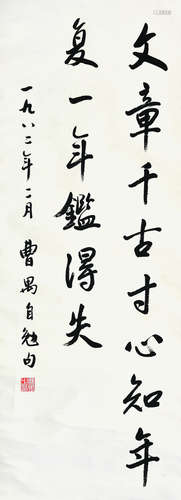 文章千古寸心知年
复一年鑑得失
一九八二年二月 曹禺自勉句